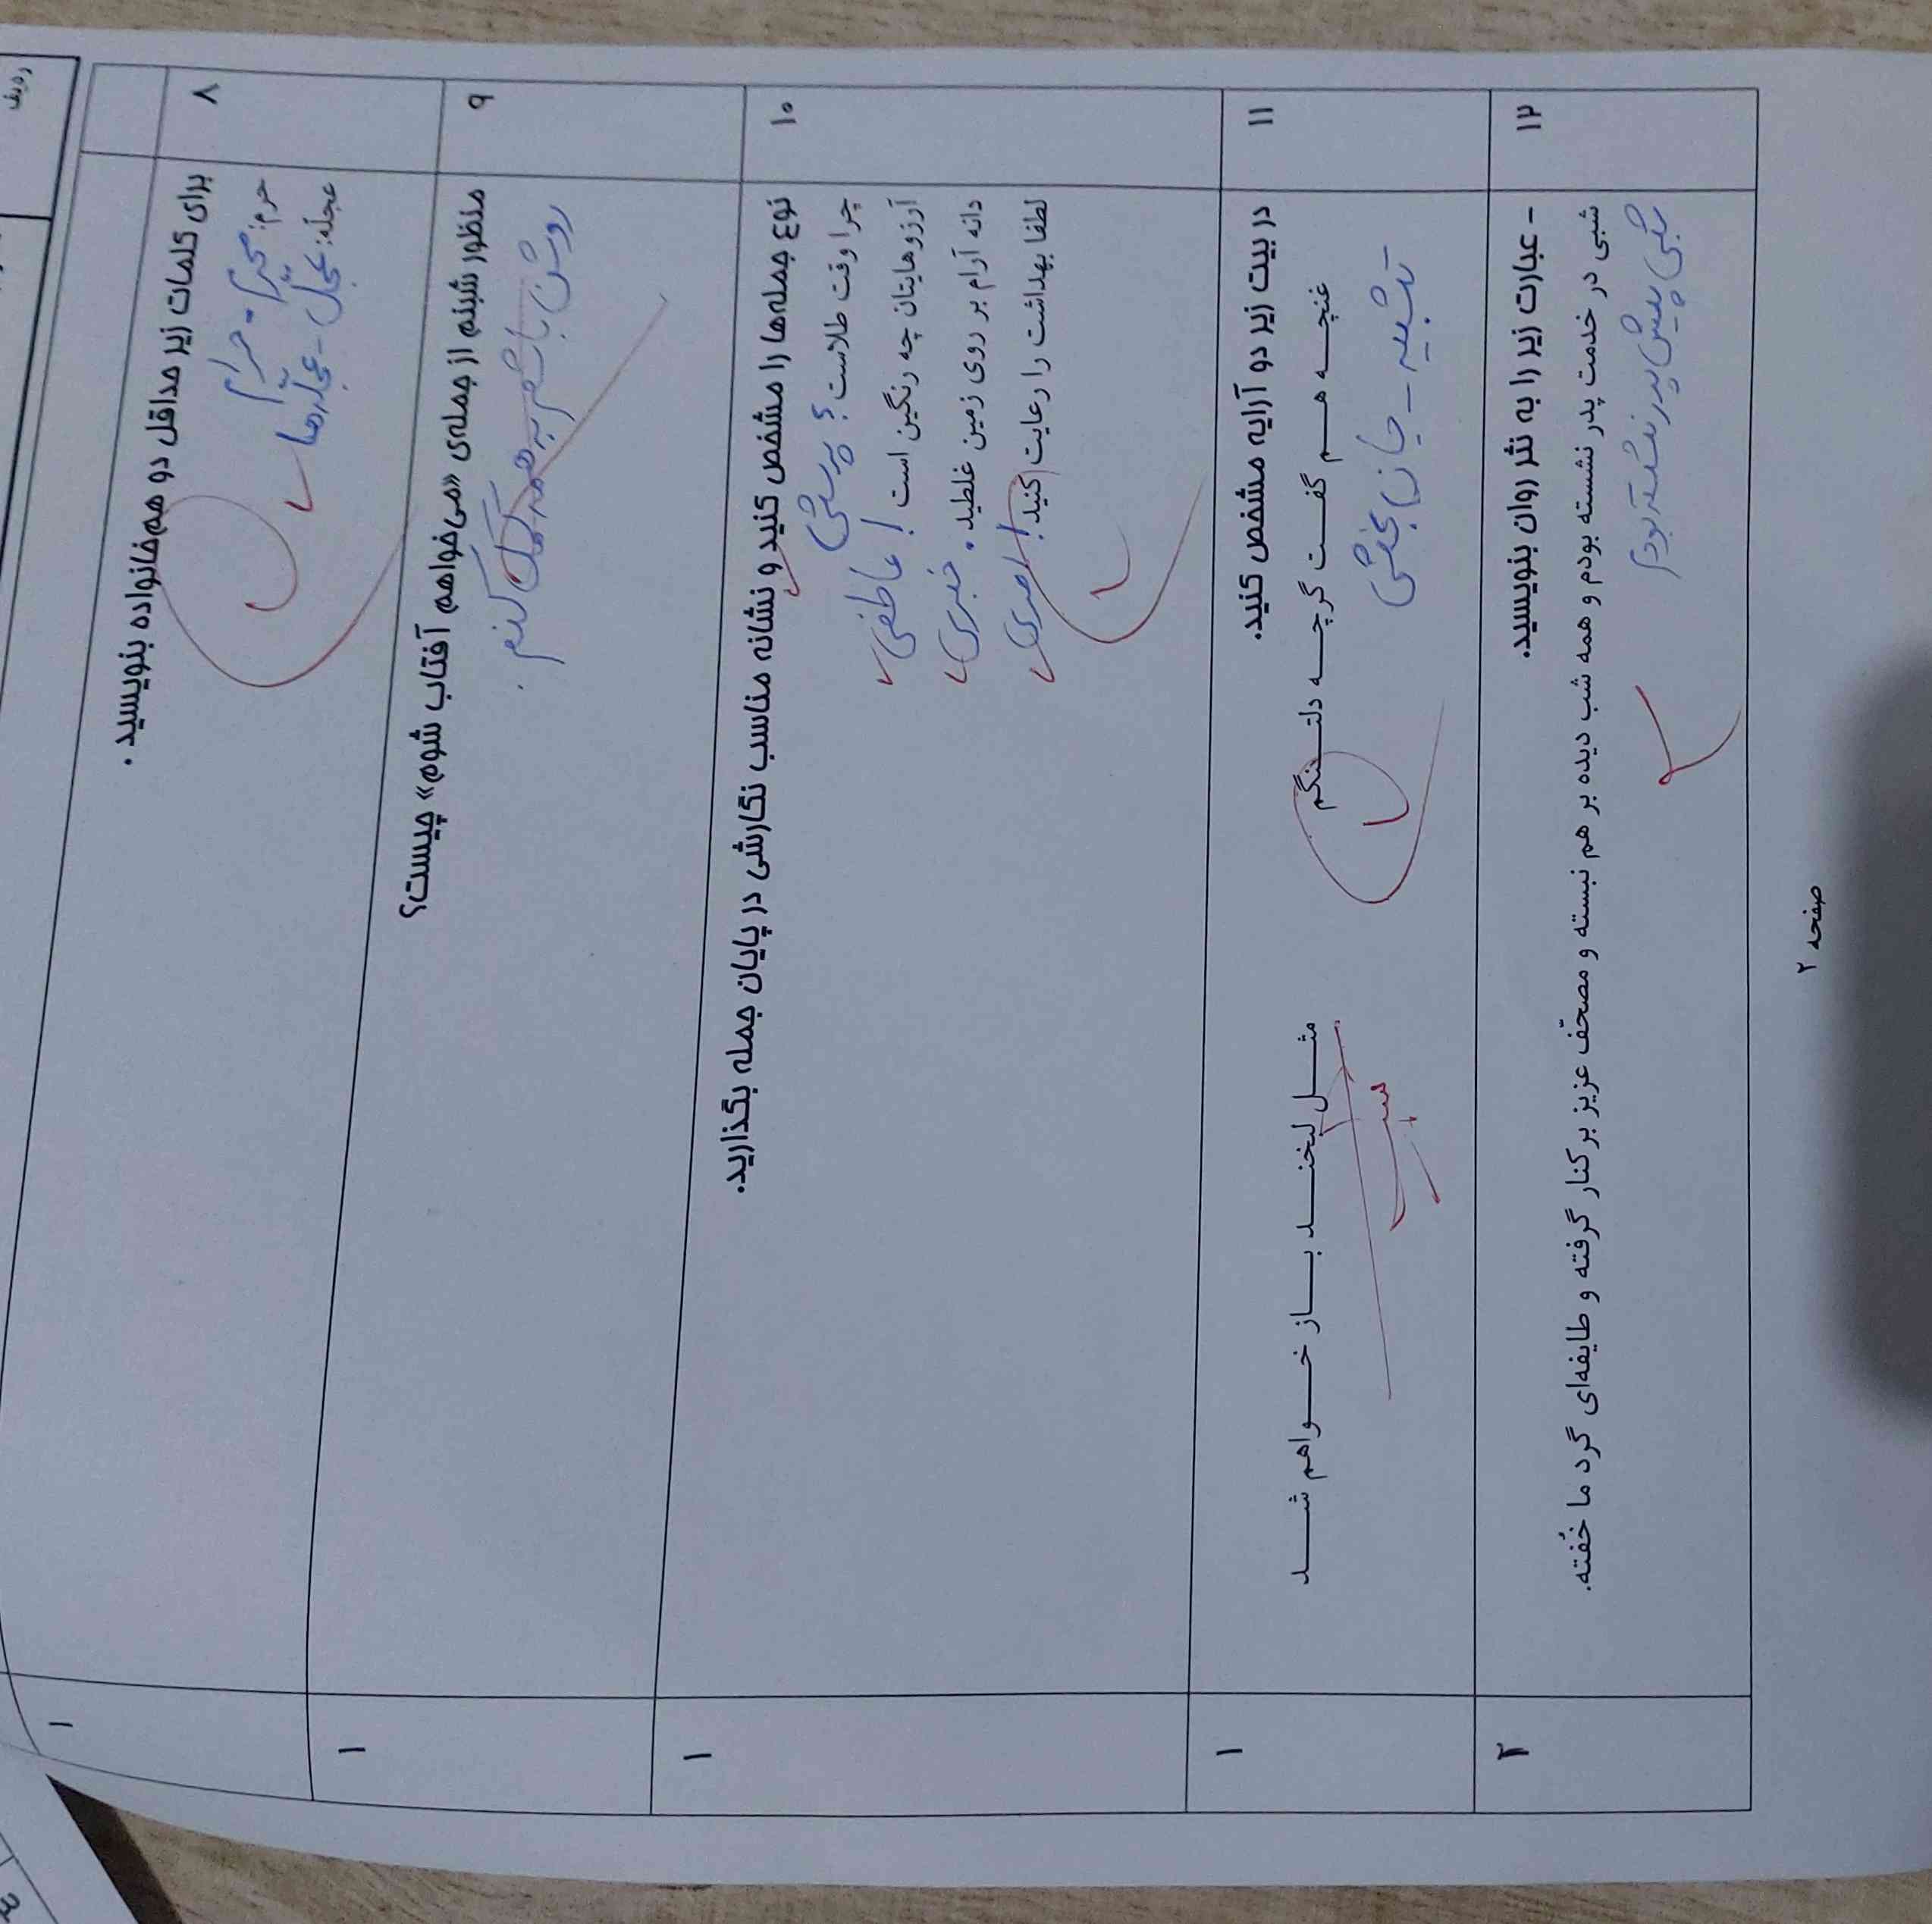 ردیف
۸
برای کلمات زیر حداقل دو هم‌خانواده بنویسید .
۱
حرم: محرم - حرام
عجله: عجل - عجله‌ها
۹
منظور شبنم از جمله‌ی «می‌خواهم آفتاب شوم» چیست؟
۱
روشن باشم به همه کمک کنم.
۱۰
نوع جمله‌ها را مشخص کنید و نشانه مناسب نگارشی در پایان جمله بگذارید.
۱
چرا وقت طلاست ؟ پرسشی
آرزوهایتان چه رنگین است ! عاطفی
دانه آرام بر روی زمین غلطید . خبری
لطفا بهداشت را رعایت کنید ! امری
۱۱
در بیت زیر دو آرایه مشخص کنید.
۱
غنچه هم گفت گرچه دلتنگم مثل لبخند باز خواهم شد
تشبیه - جان بخشی
۱۲
- عبارت زیر را به نثر روان بنویسید.
۲
شبی در خدمت پدر نشسته بودم و همه شب دیده بر هم نبسته و مصحّف عزیز بر کنار گرفته و طایفه‌ای گرد ما خُفته.
شبی پیش پدر نشسته بودم
صفحه ۲